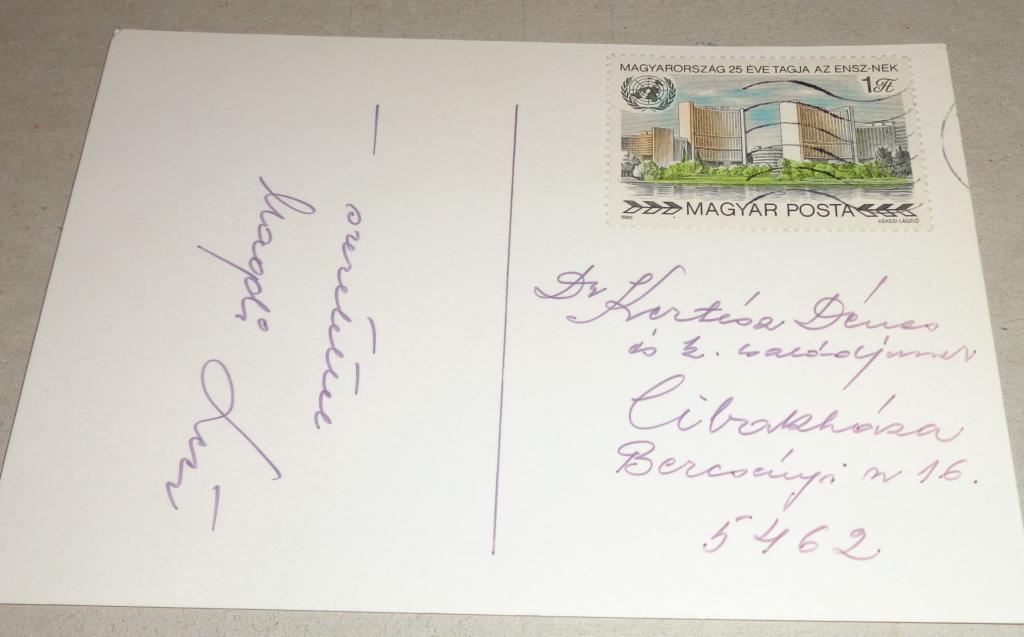 MAGYARORSZÁG 25 ÉVE TAGJA AZ ENSZ-NEK
1 Ft
MAGYAR POSTA
1980 KÉKESI LÁSZLÓ
Dr Kertész Dénes
és k. családjának
Cibakháza
Bercsényi u 16.
5462
szeretettel
Magdi